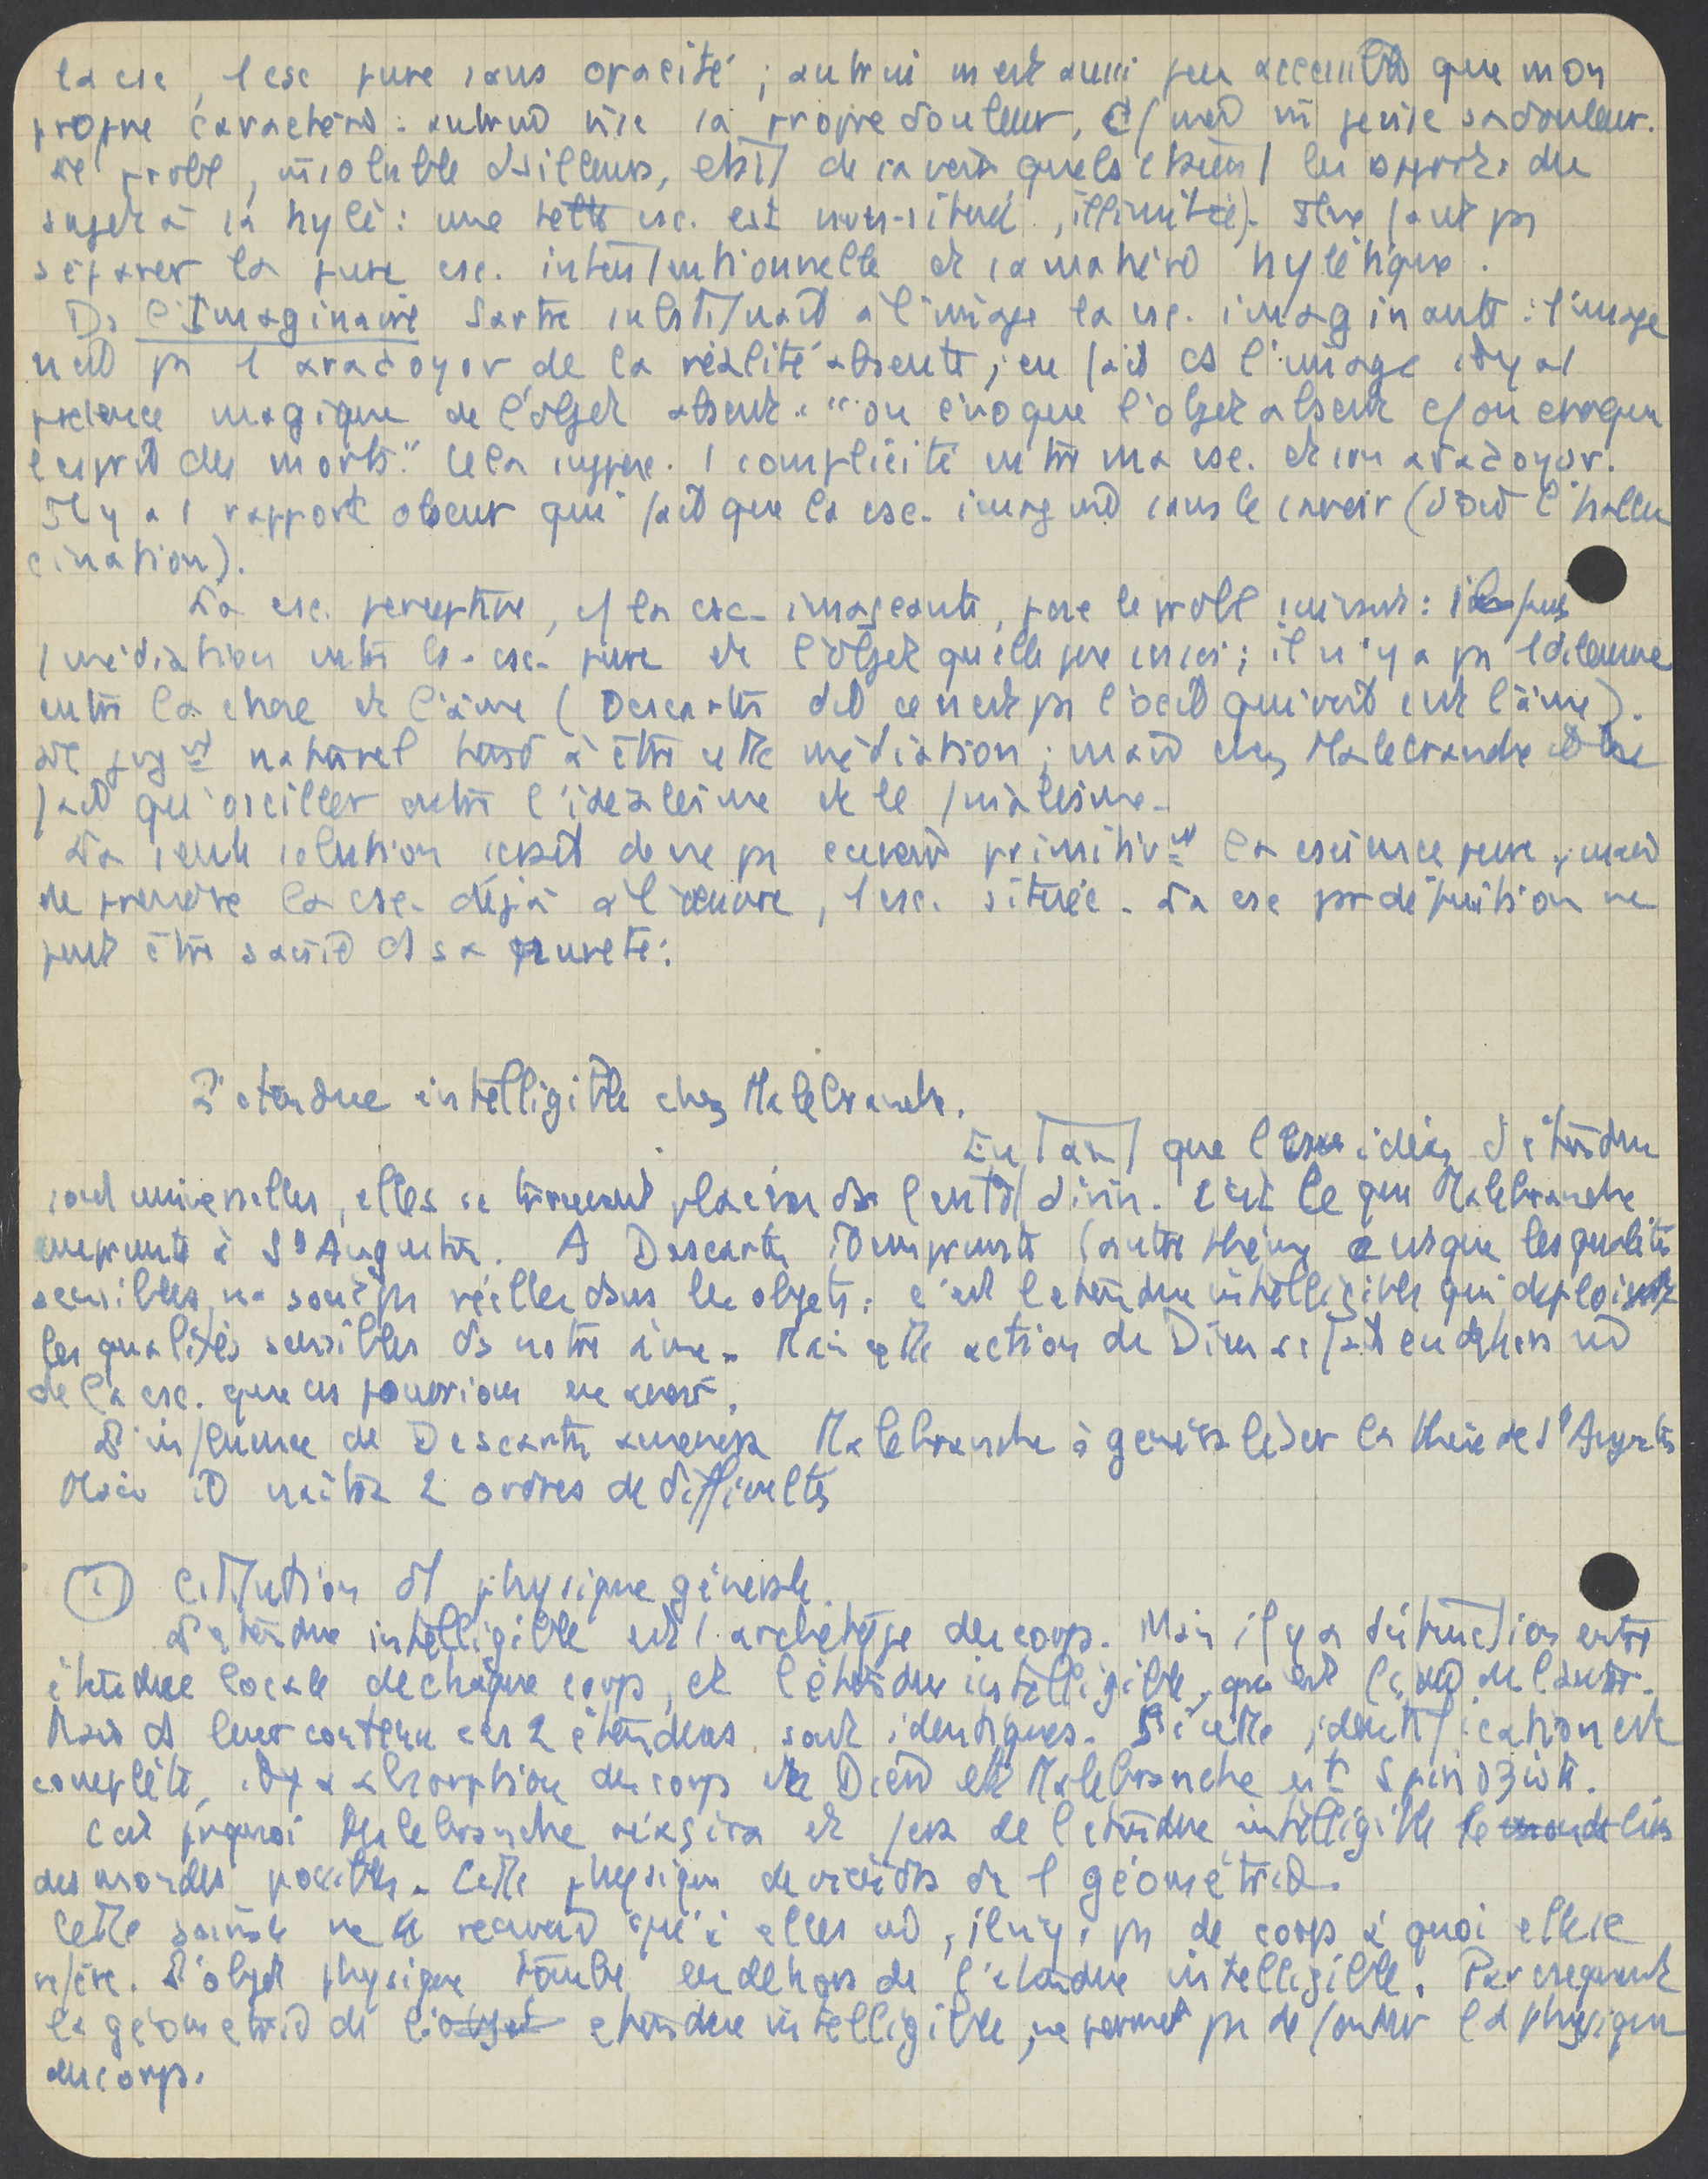 la csc, 1 csc pure sans opacité ; autrui m'est aussi peu accessible que mon
propre caractère : autrui vise sa propre douleur, c/ moi je vise sa douleur.
Le probl, insoluble d'ailleurs, est de savoir quels étaient les apports du
sujet à la hylé : une telle csc. est non-située, illimitée). Il ne faut ps
séparer la pure csc. intentionnelle et sa matière hylétique.
Ds l'Imaginaire Sartre substituait à l'image la csc. imaginante : l'image
n'est ps 1 analogon de la réalité absente ; en fait ds l'image il y a 1
présence magique de l'objet absent. "on évoque l'objet absent c/ on évoque
l'esprit des morts." Cela suppose 1 complicité entre ma csc. et son analogon.
Il y a 1 rapport obscur qui fait que la csc. imagine sans le savoir (d'où l'hallu
cination).
La csc. perceptive, c/ la csc. imageante, pose le probl suivant :
1 médiation entre la csc. pure et l'objet qu'elle pose ; il n'y a ps 1 dilemme
entre la chose et l'âme (Descartes dit ce n'est ps l'oeil qui voit c'est l'âme).
Le jugt naturel tend à être cette médiation ; mais chez Malebranche il ne
fait qu'osciller entre l'idéalisme et le réalisme.
La seule solution serait de ne ps concevoir primitivt la conscience pure, mais
de prendre la csc. déjà à l'oeuvre, 1 csc. située. La csc par définition ne
peut être saisie ds sa pureté.
L'étendue intelligible chez Malebranche.
En tant que les idées d'étendue
sont universelles, elles se trouvent placées ds l'entdt divin. C'est ce que Malebranche
emprunte à St Augustin. A Descartes il emprunte l'autre thème que les qualités
sensibles ne sont ps réelles dans les objets : c'est l'étendue intelligible qui déploie
les qualités sensibles ds notre âme. Mais cette action de Dieu se fait en dehors
de la csc. que ns pouvions en avoir.
L'influence de Descartes amènera Malebranche à généraliser la thèse de St Augustin
Mais il naîtra 2 ordres de difficultés
① Cstitution d'1 physique générale.
L'étendue intelligible est 1 archétype des corps. Mais il y a distinction entre
étendue locale de chaque corps, et l'étendue intelligible, qui est l'idée de l'autre.
Mais ds leur contenu ces 2 étendues sont identiques. Si cette identification est
complète, il y a absorption des corps en Dieu et Malebranche est Spinoziste.
C'est prquoi Malebranche réagira et fera de l'étendue intelligible le monde lieu
des mondes possibles. Cette physique deviendra 1 géométrie.
Cette science ne renverrait qu'à elle, il n'y a ps de corps à quoi elle se
réfère. L'objet physique tombe en dehors de l'étendue intelligible. Par cséquent
la géométrie de l'objet étendue intelligible, ne permet ps de fonder la physique
des corps.